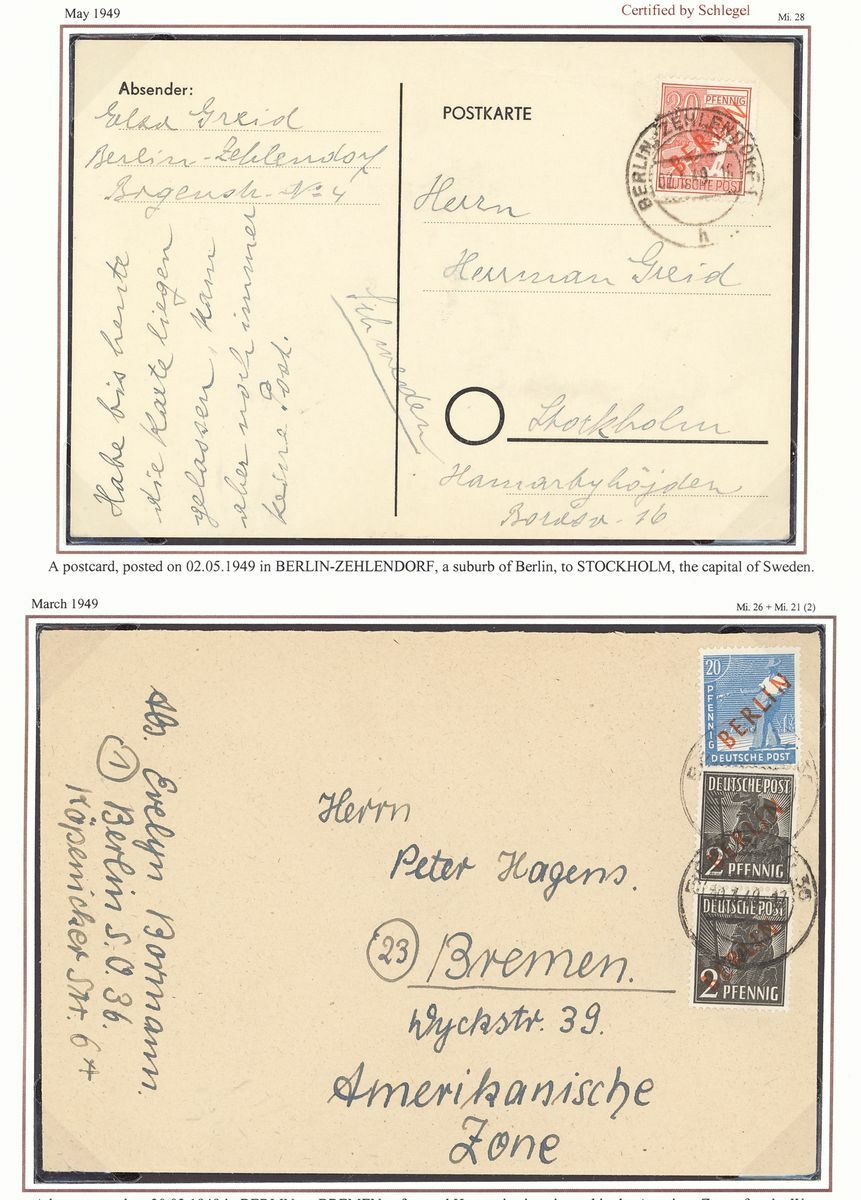 May 1949
Certified by Schlegel
Mi. 28
Absender:
Greid
Berlin-Zehlendorf
No 4
Habe bis heute
die Karte liegen
gelassen, kam
aber noch immer
keine Post.
POSTKARTE
30 PFENNIG
DEUTSCHE POST
BERLIN-ZEHLENDORF 1
h
Herrn
Herrman Greid
Stockholm
Hamarbyhöjden
16
Schweden
A postcard, posted on 02.05.1949 in BERLIN-ZEHLENDORF, a suburb of Berlin, to STOCKHOLM, the capital of Sweden.
March 1949
Mi. 26 + Mi. 21 (2)
Abs. Evelyn Bormann.
(1) Berlin S.O 36.
Köpenicker Str. 6
20
PFENNIG
BERLIN
DEUTSCHE POST
DEUTSCHE POST
BERLIN
2 PFENNIG
DEUTSCHE POST
BERLIN
2 PFENNIG
Herrn
Peter Hagens.
(23) Bremen.
Wyckstr. 39.
Amerikanische
Zone